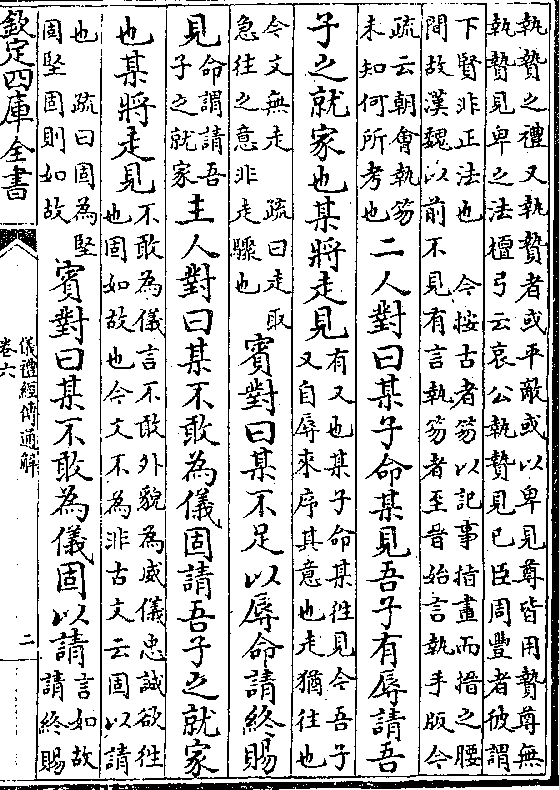 執贄之禮又執贄者或平敵或以卑見尊皆用贄尊無
執贄見卑之法檀弓云哀公執贄見已臣周豐者彼謂
下賢非正法也　今按古者笏以記事指畫而搢之腰
間故漢魏以前不見有言執笏者至晉始言執手版今
疏云朝會執笏
未知何所考也
二人對曰某子命某見吾子有辱請吾
子之就家也某將走見
有又也某子命某往見今吾子
又自辱來序其意也走猶往也
今文無走　疏曰走取
急往之意非走驟也
賓對曰某不足以辱命請終賜
見
命謂請吾
子之就家
主人對曰某不敢為儀固請吾子之就家
也某將走見
不敢為儀言不敢外貌為威儀忠誠欲往
也固如故也今文不為非古文云固以請
也　疏曰固為堅
固堅固則如故
賓對曰某不敢為儀固以請
言如故
請終賜
欽定四庫全書
儀禮經傳通解
卷六
二